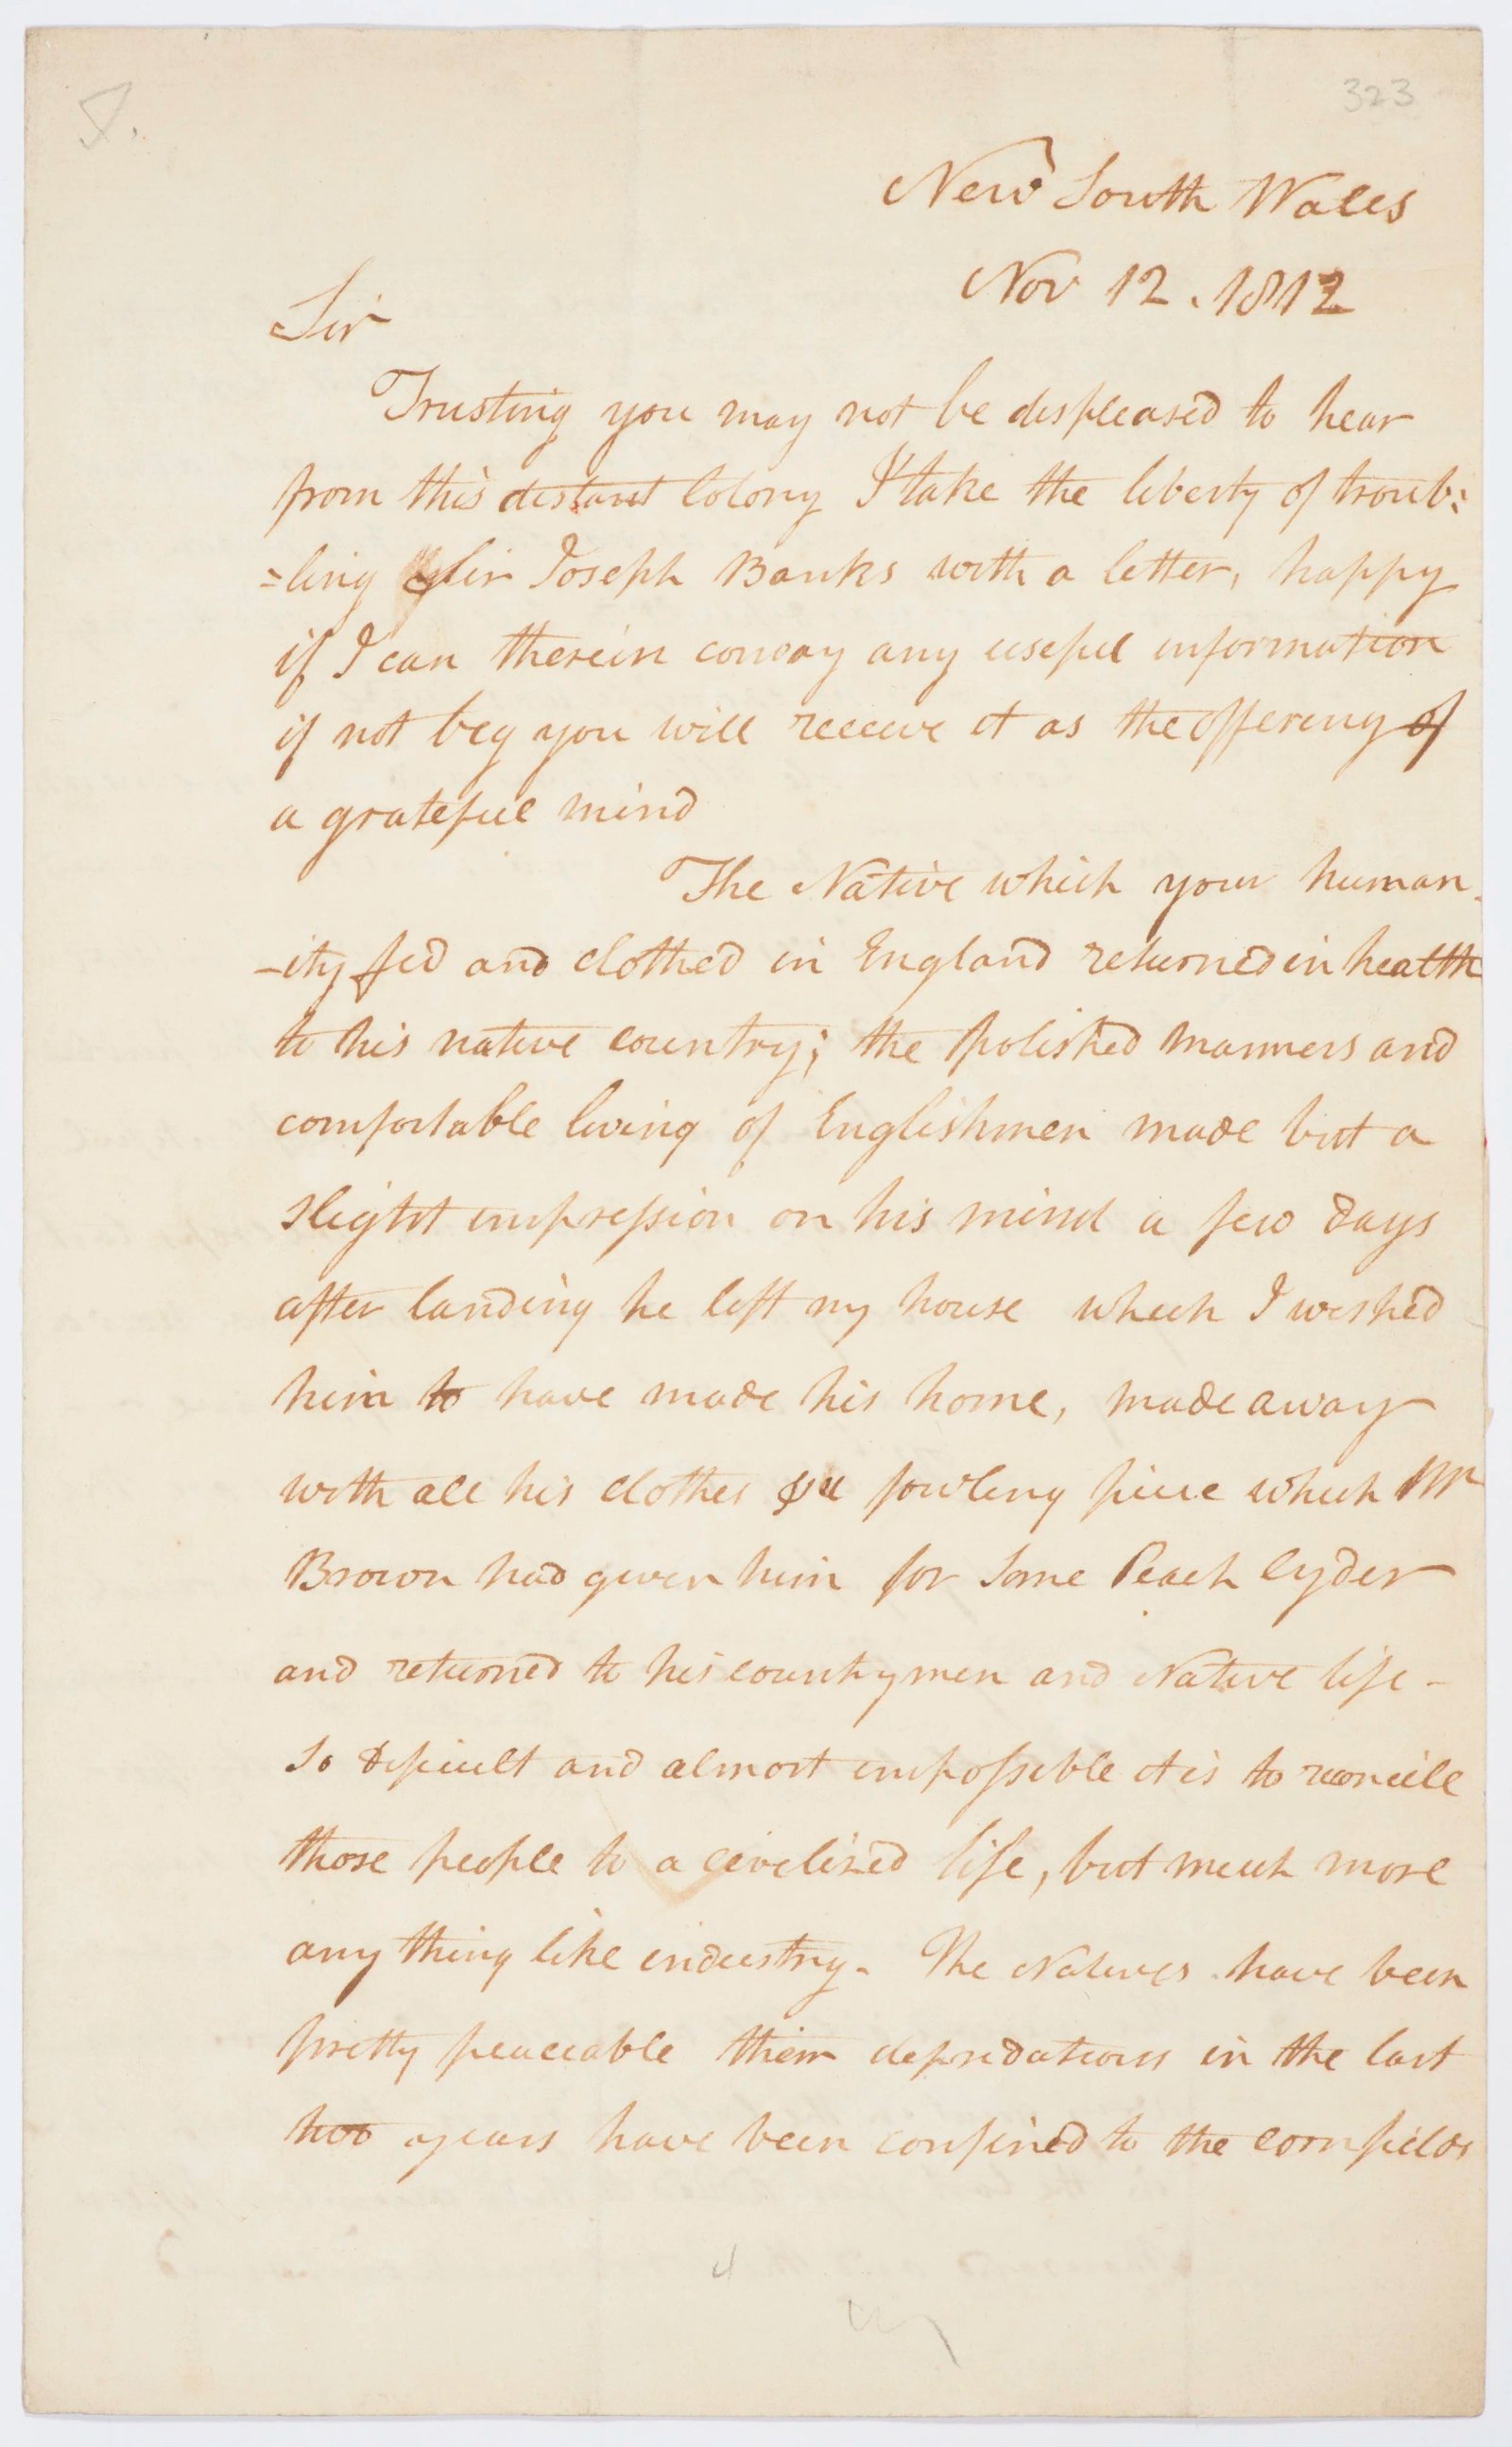 323
New South Wales
Nov 12. 1812
Sir
Trusting you may not be displeased to hear
from this distant Colony I take the liberty of troub=
=ling Sir Joseph Banks with a letter, happy
if I can therein convay any useful information
if not beg you will receive it as the offering of
a grateful mind
The Native which your human-
-ity fed and clothed in England returned in health
to his native country; the polished manners and
comfortable living of Englishmen made but a
slight impression on his mind a few days
after landing he left my house which I wished
him to have made his home, made away
with all his clothes & fowling piece which Mr
Brown had given him for some Peach Cyder
and returned to his countrymen and Native life -
so dificult and almost impossible it is to reconcile
those people to a civelized life, but much more
any thing like industry. The Natives have been
pretty peaceable their depridations in the last
two years have been confined to the cornfields